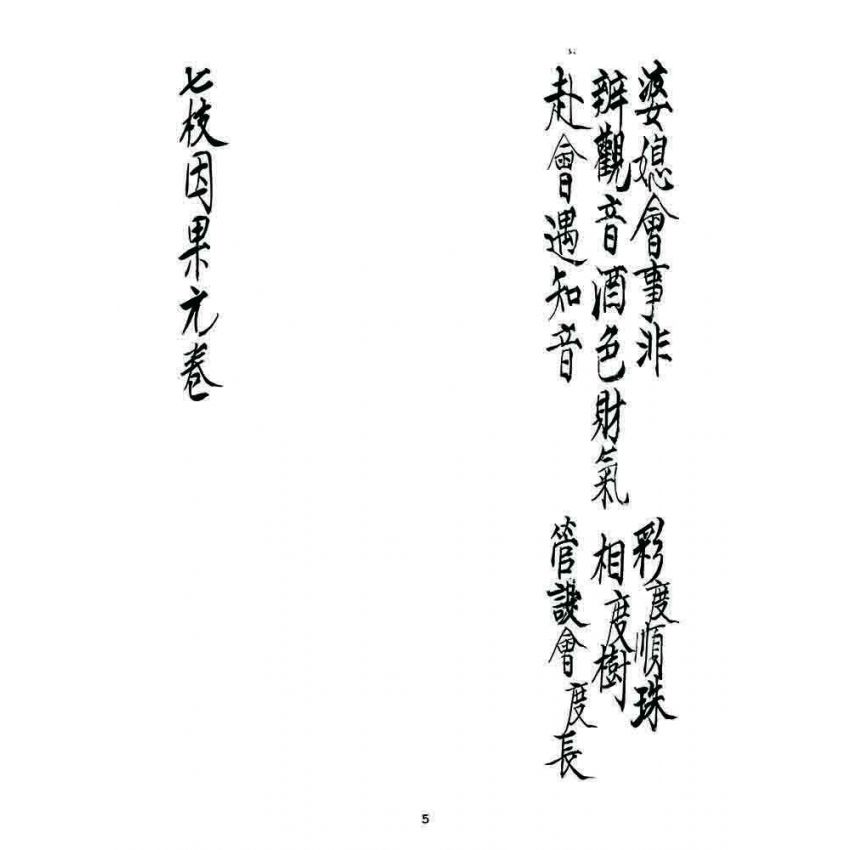 婆媳會事非 彩度順珠
辦觀音酒色財氣 相度樹
赴會遇知音 管謢會度長
七枝因果元卷
5